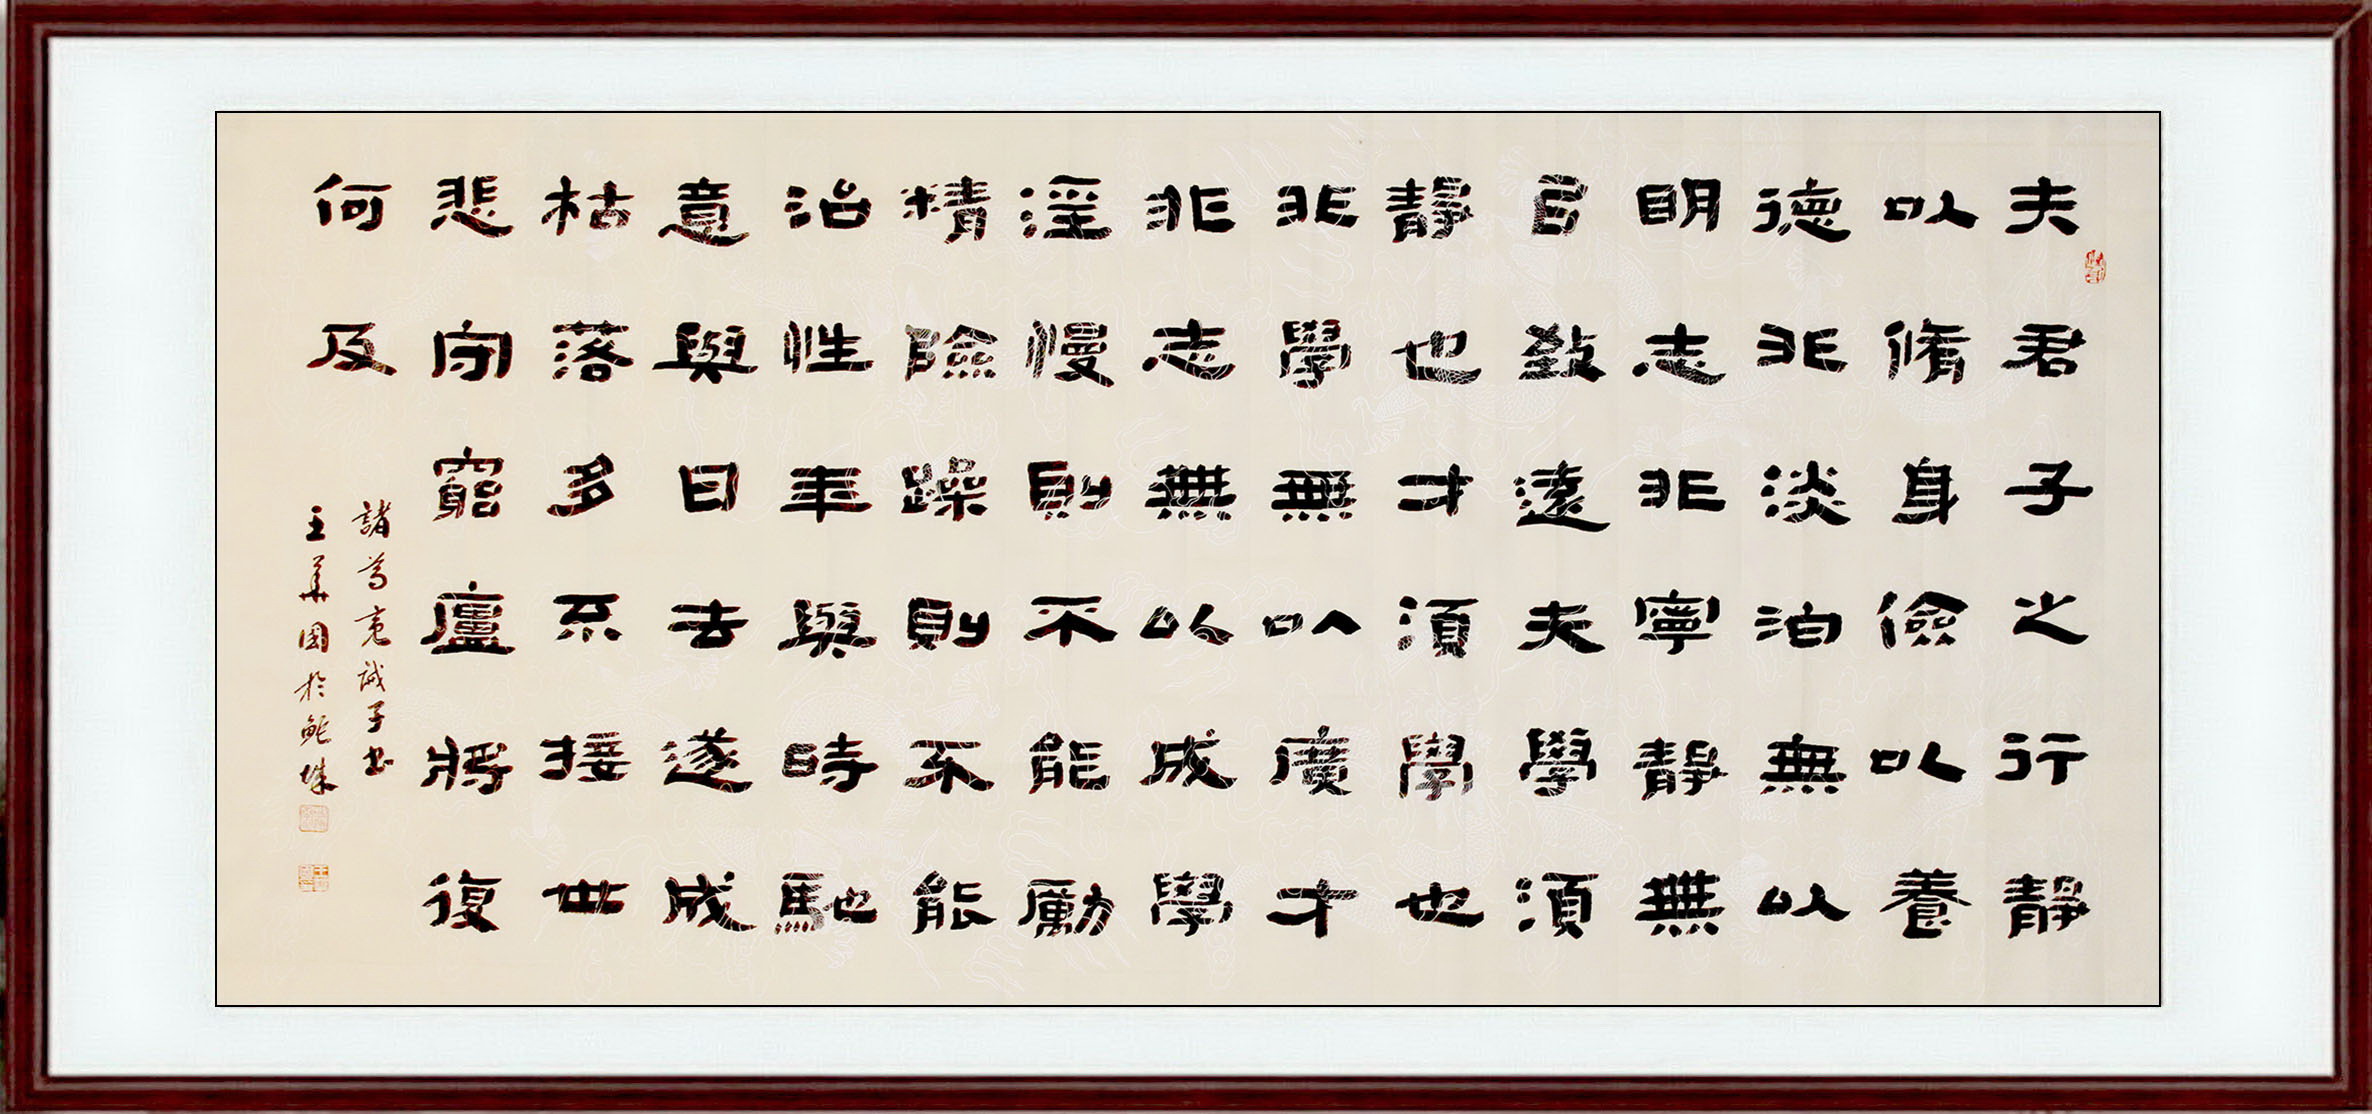 夫君子之行靜
以脩身儉以養
德非淡泊無以
明志非寧靜無
㠯致遠夫學須
靜也才須學也
非學無以廣才
非志無以成學
淫慢則不能勵
精險躁則不能
治性年與時馳
意與日去遂成
枯落多不接世
悲守窮廬將復
何及
諸葛亮誡子書
王華國於鮀城